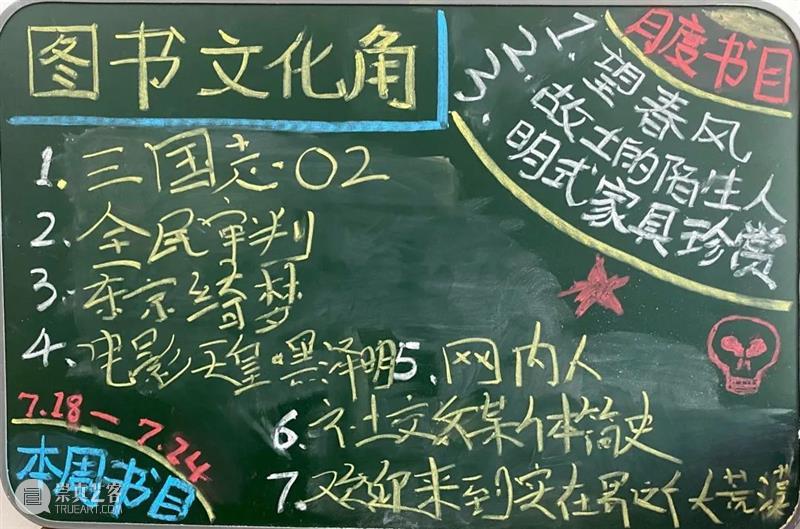 图书文化角
1. 三国志·02
2. 全民审判
3. 东京绮梦
4. 电影天皇·黑泽明
5. 网内人
6. 社交媒体简史
7. 欢迎来到实在界这个大荒漠
月度书目
1. 望春风
2. 故土的陌生人
3. 明式家具珍赏
7.18—7.24
本周书目
崇真艺客
TRUEART.COM